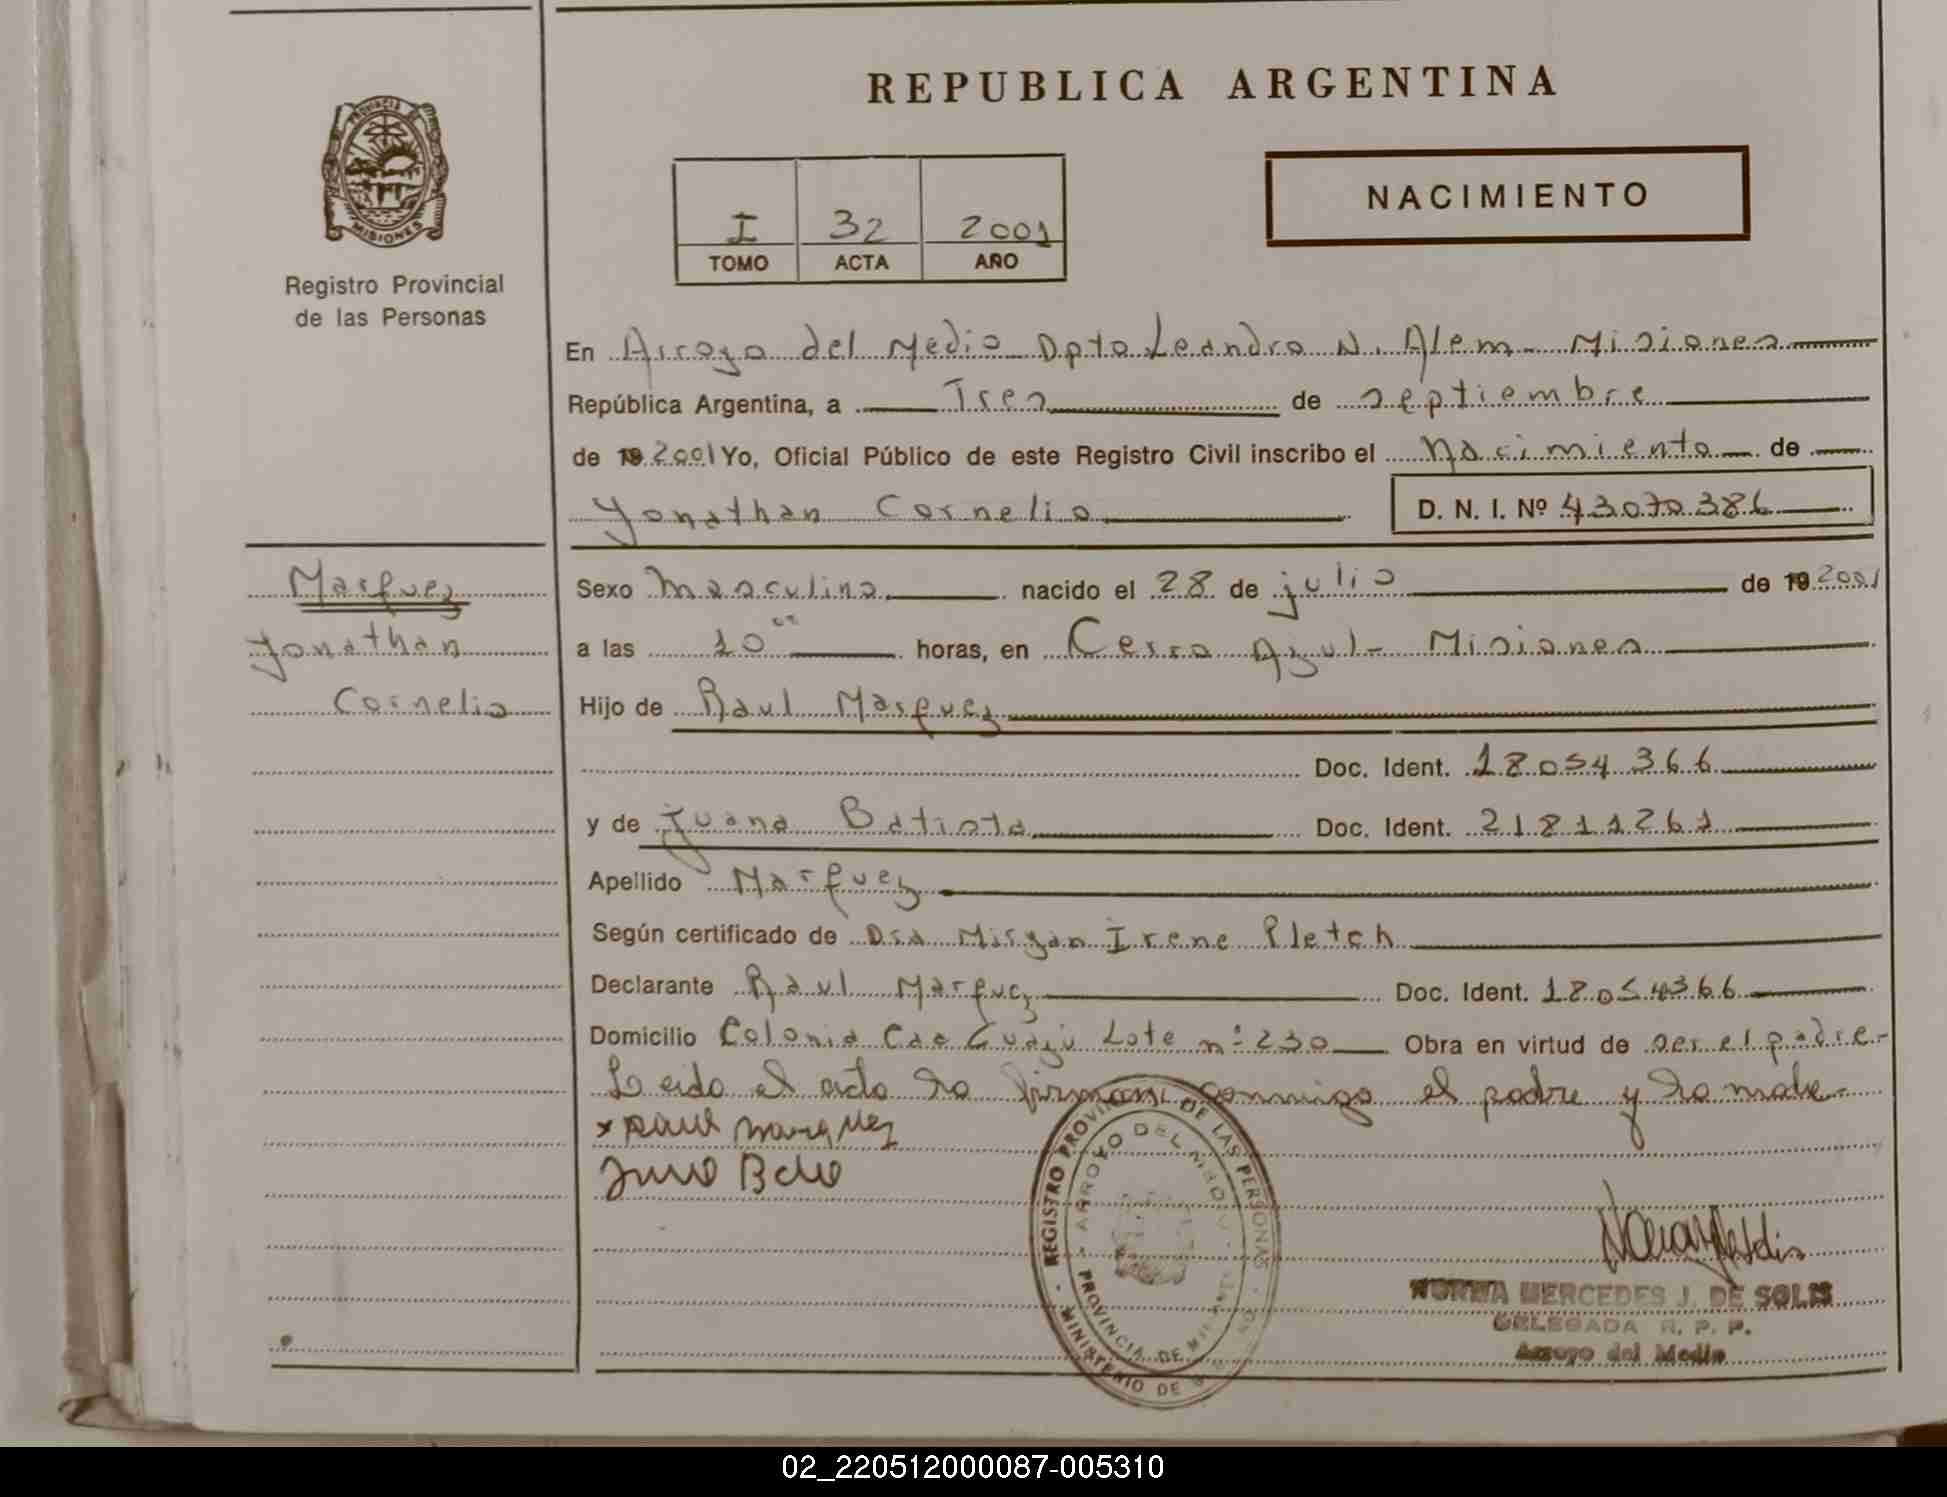 REPUBLICA ARGENTINA
PROVINCIA DE
MISIONES
Registro Provincial
de las Personas
I 32 2001
TOMO ACTA AÑO
NACIMIENTO
En Arroyo del Medio Dpto Leandro N. Alem - Misiones
República Argentina, a Tres de septiembre
de 19 2001 Yo, Oficial Público de este Registro Civil inscribo el Nacimiento de
Yonathan Cornelio D. N. I. Nº 43070386
Marquez
Yonathan
Cornelio
Sexo Masculino nacido el 28 de julio de 19 2001
a las 10 horas, en Cerro Azul - Misiones
Hijo de Raul Marquez
Doc. Ident. 18.054.366
y de Juana Batista Doc. Ident. 21811261
Apellido Marquez
Según certificado de Dra Miryan Irene Pletch
Declarante Raul Marquez Doc. Ident. 18.054366
Domicilio Colonia Caa Guazú Lote nº 230 Obra en virtud de ser el padre-
Leido el acta la firman conmigo el padre y la madre-
x Raul Marquez
REGISTRO PROVINCIAL DE LAS PERSONAS
ARROYO DEL MEDIO
PROVINCIA DE MISIONES
MINISTERIO DE
NORMA MERCEDES J. DE SOLIS
DELEGADA R. P. P.
Arroyo del Medio
02_220512000087-005310